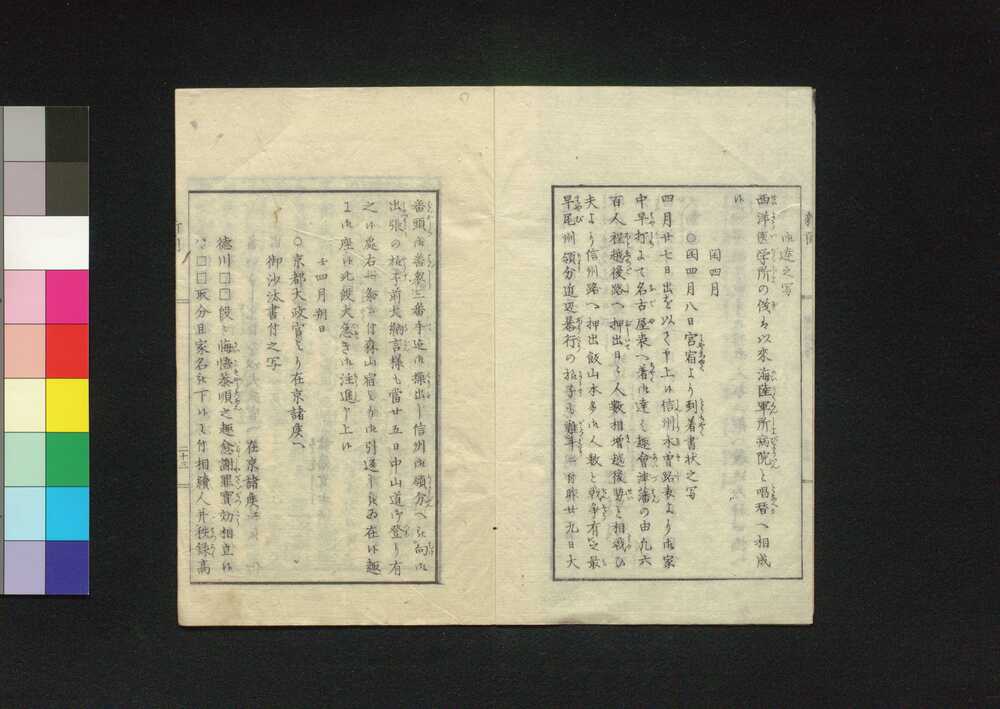 御達之写
西洋医学所の儀ハ以来海陸軍所病院と唱替へ相成
候
閏四月
○閏四月八日宮宿より到着書状之写
四月廿七日出を以て申上候信州木曽路表より御家
中早打よて名古屋表へ着御達し趣會津藩の由九六
百人程越後路へ押出日々人数相増越後勢と相戦ひ
夫より信州路へ押出飯山水多の人数と戦争有之最
早尾州領分迫辺暴行の様子も難斗付昨廿九日大
番頭御番衆二番手迄御操出し信州御領分へ被向候
出張の様子前大納言様も當廿五日中山道御登り有
之候処右一条ニ付森山宿とかに引返し在候趣
よ御座候此段大急き御注進申上候
壬四月朔日
○京都大政官より在京諸侯へ
御沙汰書付之写
在京諸侯江
徳川□□段々悔悟恭順之趣愈謝罪實効相立候
□□取分且家名被下候ニ付相續人并秩録高